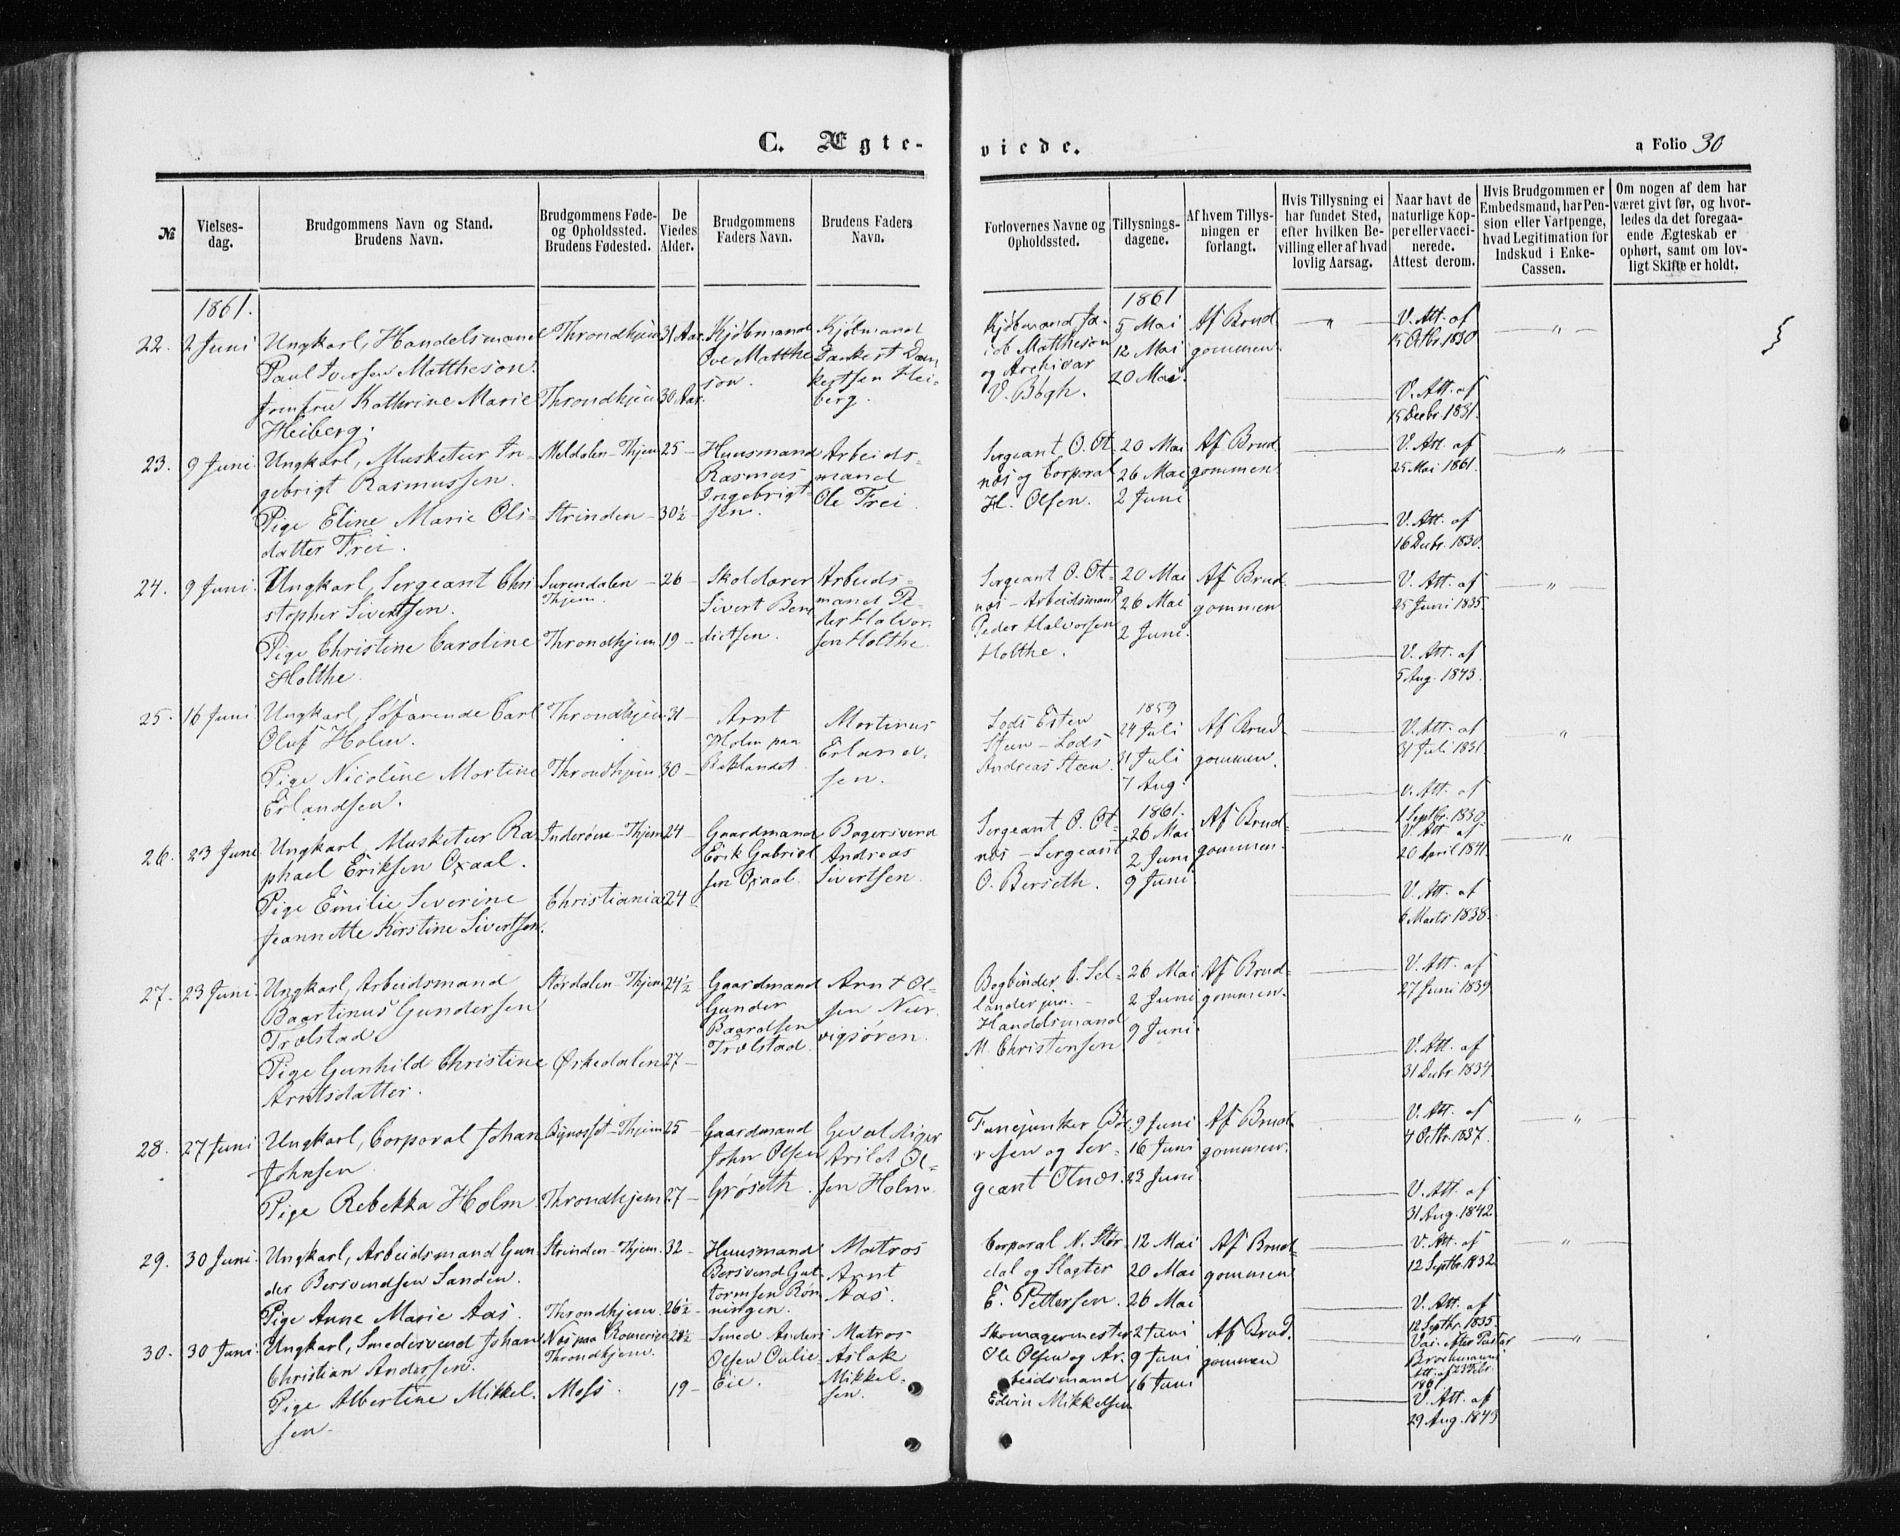 C. Ægte-
viede.
a Folio 30
№
Vielses-
dag.
Brudgommens Navn og Stand.
Brudens Navn.
Brudgommens Føde-
og Opholdssted.
Brudens Fødested.
De
Viedes
Alder.
Brudgommens
Faders Navn.
Brudens Faders
Navn.
Forlovernes Navne og
Opholdssted.
Tillysnings-
dagene.
Af hvem Tillys-
ningen er
forlangt.
Hvis Tillysning ei
har fundet Sted,
efter hvilken Be-
villing eller af hvad
lovlig Aarsag.
Naar havt de
naturlige Kop-
per eller vacci-
nerede.
Attest derom.
Hvis Brudgommen er
Embedsmand, har Pen-
sion eller Vartpenge,
hvad Legitimation for
Indskud i Enke-
Cassen.
Om nogen af dem har
været givt før, og hvor-
ledes da det foregaa-
ende Ægteskab er
ophørt, samt om lov-
ligt Skifte er holdt.
1861.
22.
2 Juni
Ungkarl, Handelsmand
Paul Iversen Mattheson.
Jomfru Kathrine Marie
Heiberg.
Throndhjem
Throndhjem
31 Aar.
30 Aar.
Kjøbmand
Ove Matthe
son.
Kjøbmand
Dankert Dan
kertsen Hei-
berg.
Kjøbmand Ja-
cob Mattheson
og Archivar
V. Bøgh.
1861
5 Mai
12 Mai
20 Mai.
Af Brud
gommen
"
V. Att. af
15 Octbr. 1830
V. Att. af
15 Decbr. 1831.
"
23.
9 Juni
Ungkarl, Musketeer In-
gebrigt Rasmussen.
Pige Eline Marie Ols-
datter Frei.
Meldalen - Thjem
Strinden -
25 -
30½ -
Huusmand
Rasmus
Ingebrigt-
sen.
Arbeids-
mand
Ole Frei
Sergeant O. Ot-
næs og Corporal
H. Olsen.
20 Mai
26 Mai
2 Juni
Af Brud
gommen
V. Att. af
25 Mai 1861.
V. Att. af
16 Decbr. 1830.
"
24.
9 Juni
Ungkarl, Sergeant Chri
stopher Sivertsen.
Pige Christine Caroline
Holthe.
Surendalen -
Thjem.
Throndhjem
26 -
19 -
Skolelærer
Sivert Bene
dictsen.
Arbeids-
mand Pe-
der Halvor-
sen Holthe.
Sergeant O. Ot-
næs - Arbeidsmand
Peder Halvorsen
Holthe.
20 Mai
26 Mai
2 Juni.
Af Brud
gommen
V. Att. af
25 Juni 1835.
V. Att. af
5 Aug. 1843.
"
25.
16 Juni
Ungkarl, Søfarende Carl
Oluf Holm.
Pige Nicoline Mortine
Erlandsen.
Throndhjem
Throndhjem
31 -
30 -
Arnt
Holm paa
Baklandet
Mortinus
Erland-
sen.
Lods Esten
Steen - Lods
Andreas Steen.
1859
24 Juli
31 Juli
7 Aug.
Af Brud-
gommen.
V. Att. af
31 Juli 1831.
V. Att. af
1 Septbr. 1830.
"
26.
23 Juni
Ungkarl, Musketeer Ra
phael Eriksen Oxaal.
Pige Emilie Severine
Jeannette Kirstine Sivertsen.
Inderøen - Thjem
Christiania
24 -
24 -
Gaardmand
Erik Gabriel
sen Oxaal.
Bagersvend
Andreas
Sivertsen.
Sergeant O. Ot-
næs - Sergeant
O. Berseth.
1861.
26 Mai
2 Juni
9 Juni
Af Brud-
gommen.
V. Att. af
20 April 1841.
V. Att. af
6 Marts 1838.
"
27.
23 Juni
Ungkarl, Arbeidsmand
Baartinus Gundersen
Trælstad.
Pige Gunhild Christine
Arntsdatter.
Størdalen - Thjem
Ørkedalen
24½
27 -
Gaardmand
Gunder
Baardsen
Trælstad.
Arnt Ol-
sen Ner-
vigsøren.
Bogbinder C. Sel-
lander jun. -
Handelsmand
M. Christensen
26 Mai
2 Juni
9 Juni
Af Brud-
gommen.
V. Att. af
27 Juni 1839
V. Att. af
31 Decbr. 1834.
28.
27 Juni
Ungkarl, Corporal Johan
Johnsen
Pige Rebekka Holm
Bynæsset - Thjem
Throndhjem
25 -
27 -
Gaardmand
John Olsen
Grøseth.
Gevaldiger
Arildt Ol-
sen Holm.
Fanejunker Bør-
resen og Ser-
geant Otnæs.
9 Juni
16 Juni
23 Juni
Af Brud-
gommen.
V. Att. af
4 Octbr. 1837.
V. Att. af
31 Aug. 1842
"
29.
30 Juni
Ungkarl, Arbeidsmand Gun-
der Bersvendsen Sanden.
Pige Anne Marie Aas.
Strinden - Thjem.
Throndhjem.
32 -
26½ -
Huusmand
Bersvend Gut-
tormsen Røn
ningen.
Matros
Arnt
Aas.
Corporal N. Stør-
dal og Slagter
E. Pettersen.
12 Mai
20 Mai
26 Mai
Af Brud-
gommen
V. Att. af
12 Septbr. 1832
V. Att. af
12 Septbr. 1835.
"
30.
30 Juni
Ungkarl, Smedesvend Johan
Christian Andersen.
Pige Albertine Mikkel-
sen.
Næs paa Romerige
Throndhjem.
Moss.
28½
19 -
Smed Anders
Olsen Culie-
Eie.
Matros
Aslak
Mikkel-
sen.
Skomagermester
Ole Olsen og Ar-
beidsmand
Edvin Mikkelsen
2 Juni
9 Juni
16 Juni
Af Brud-
gommen
1861
V. Att. af
29 Aug. 1843
"